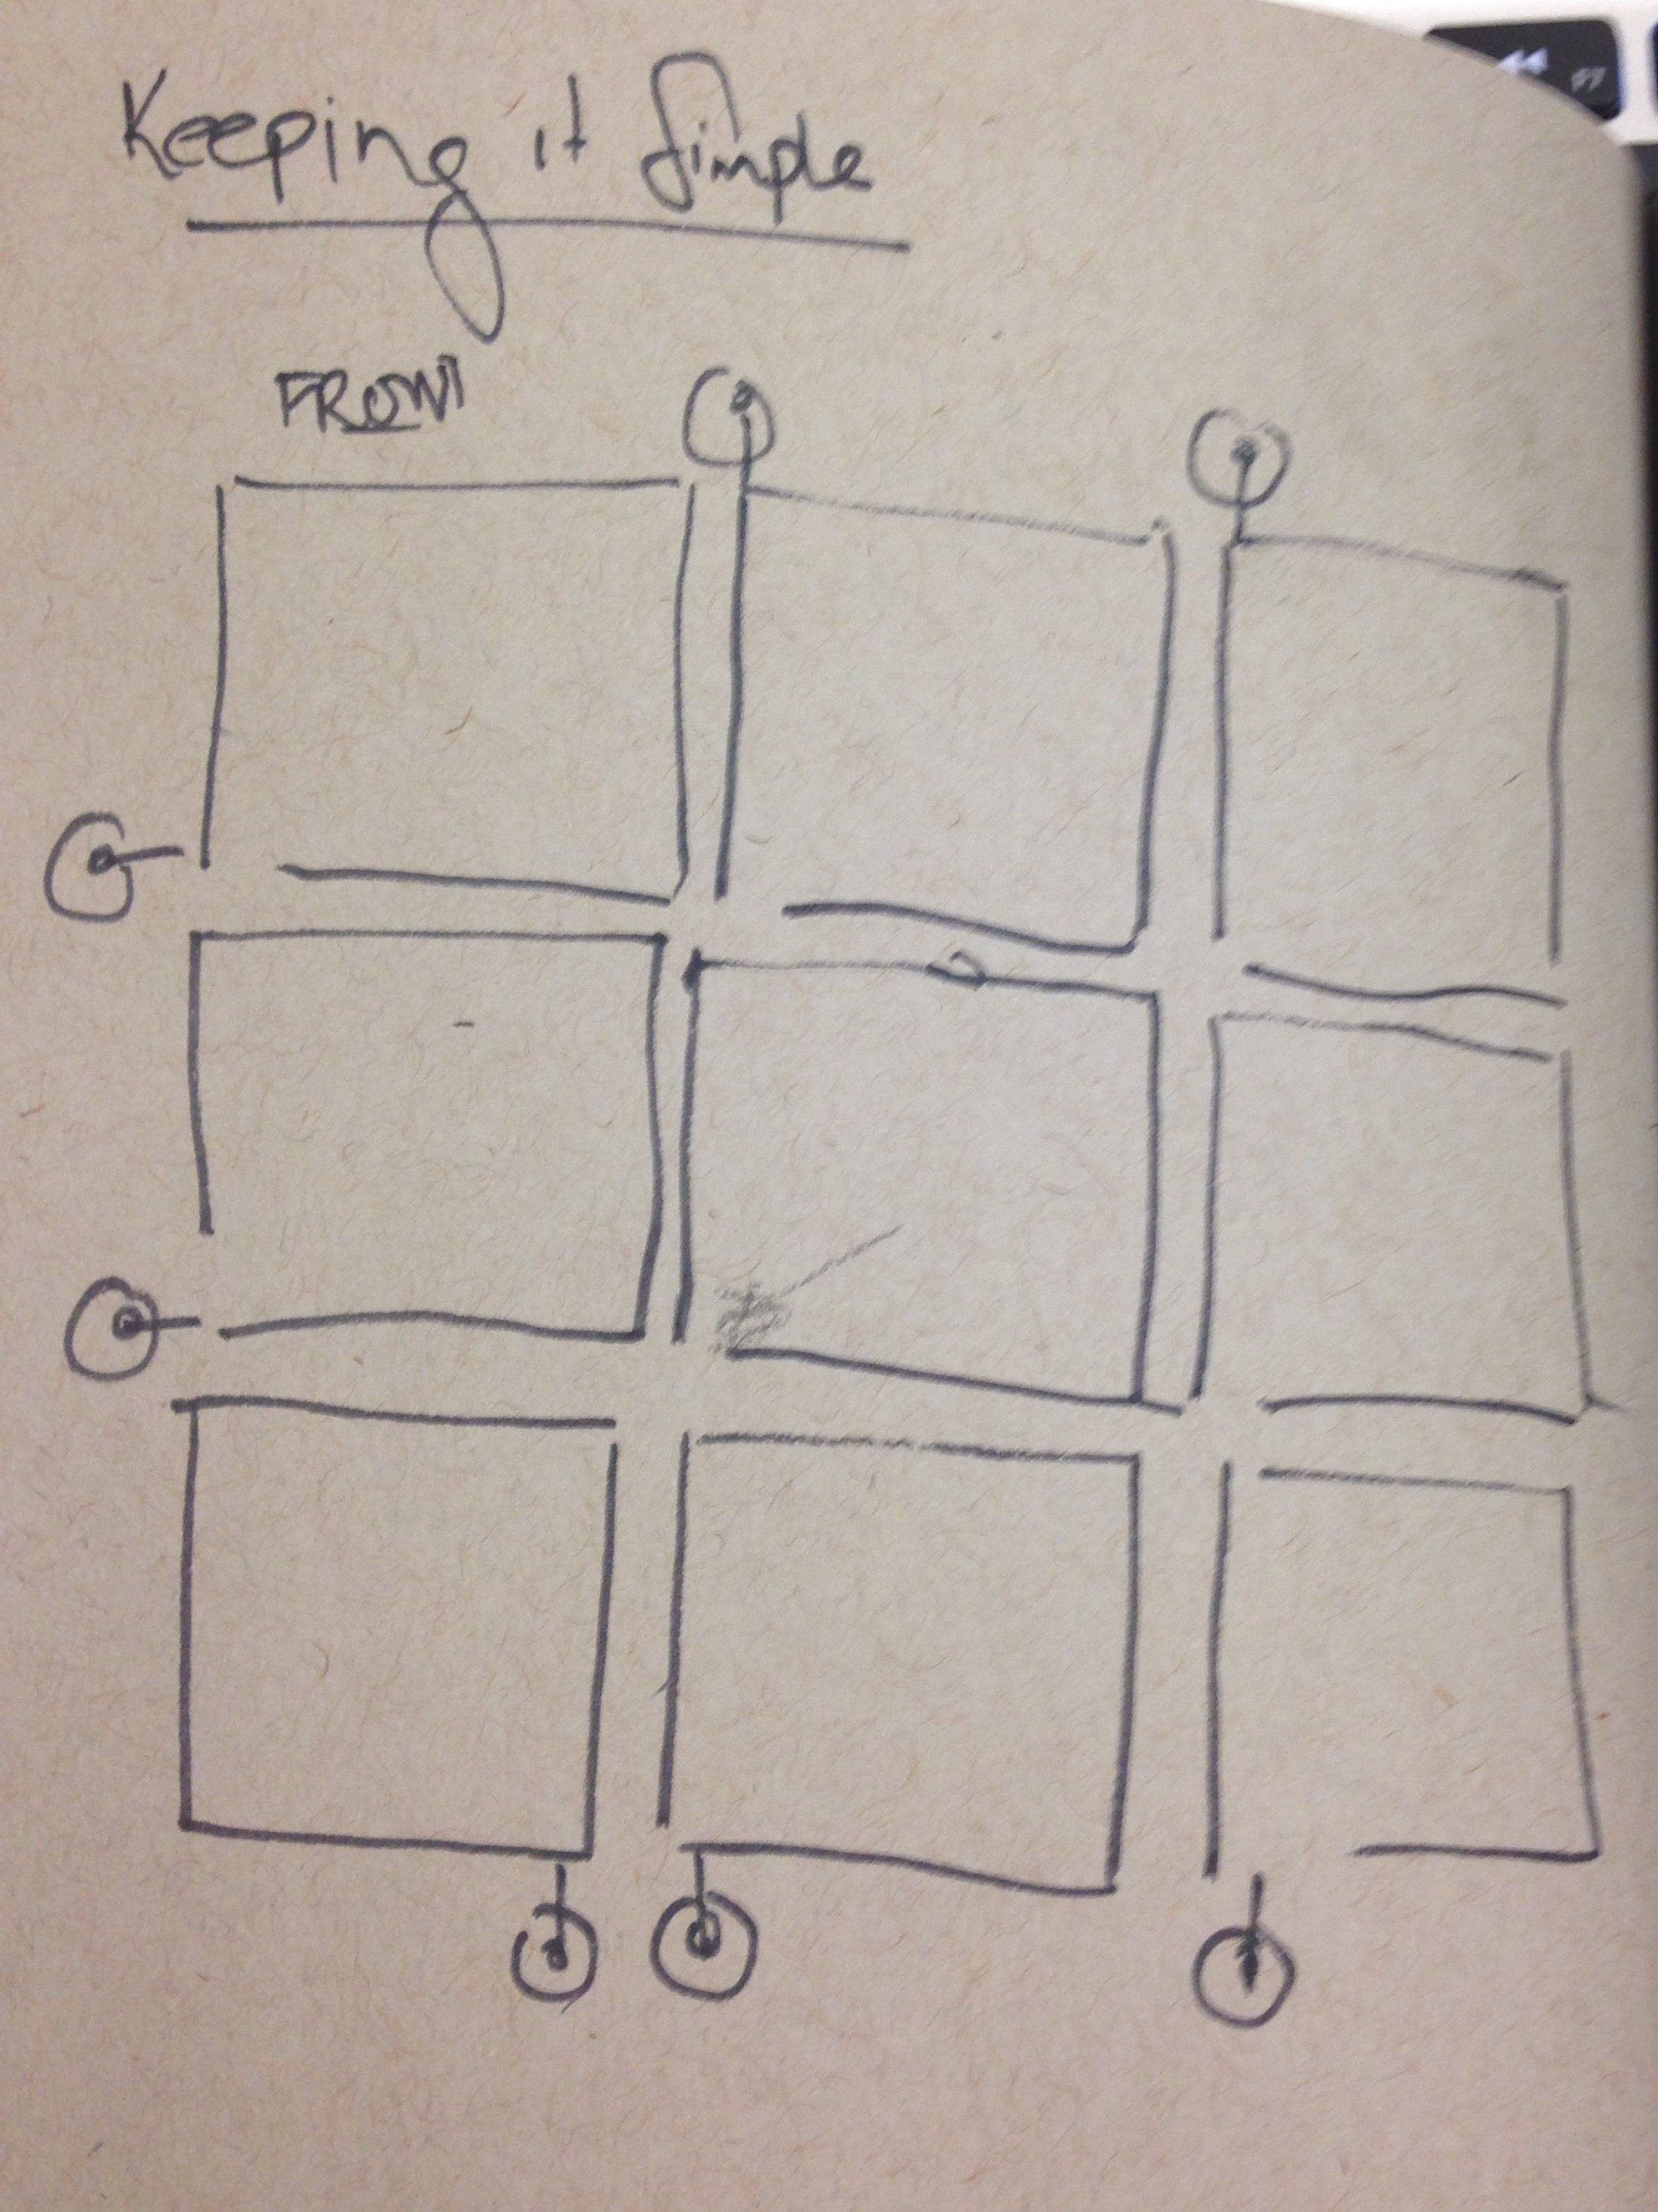 Keeping it Simple
FRONT